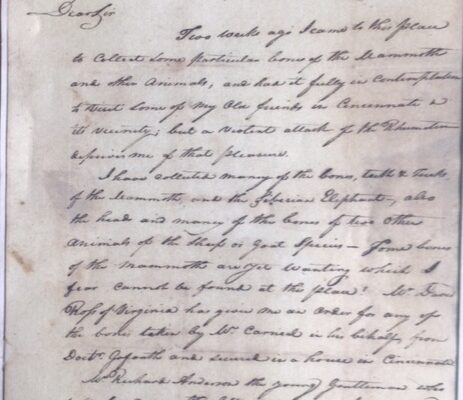 Dear Sir
Two weeks ago I came to this place
to collect some particular bones of the Mammoth
and other animals, and had it fully in contemplation
to visit some of my Old friends in Cincinnati &
its vicinity; but a violent attack of the Rheumatism
deprives me of that pleasure.
I have collected many of the bones, teeth & tusks
of the Mammoth, and the Siberian Elephant, also
the head and many of the bones of two other
animals of the Sheep or Goat Species — Some bones
of the Mammoth are yet wanting which I
fear cannot be found at this place? Mr David
Ross of Virginia has given me an order for any of
the bones taken by Mr in his behalf, from
Doctr. Goforth and secured in a house in Cincinnati
Mr Richard Anderson the young Gentleman who